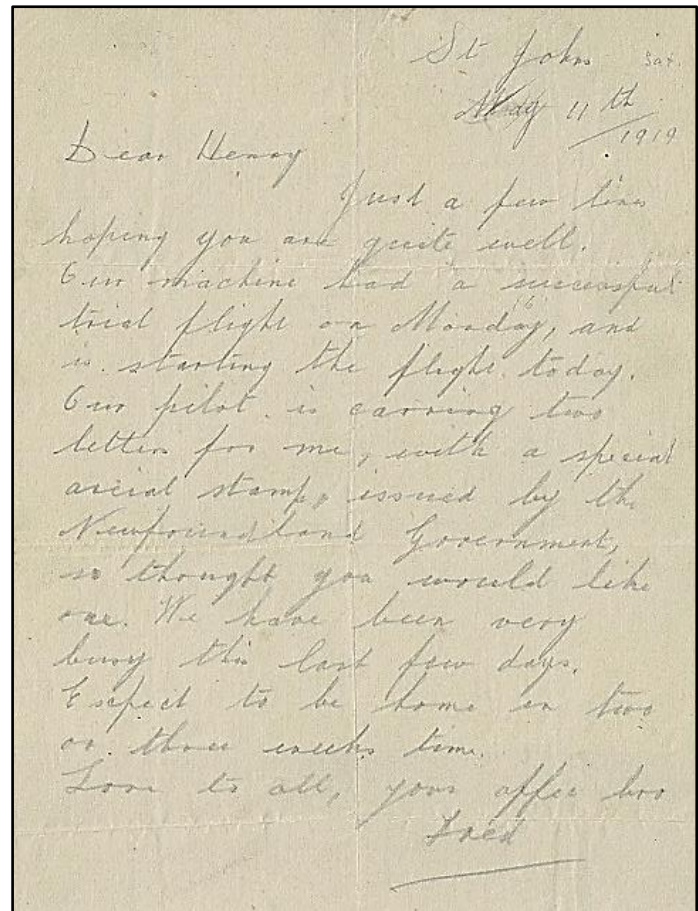 St Johns Sat.
May 11th
1919
Dear Henry
Just a few lines
hoping you are quite well.
Our machine had a successful
trial flight on Monday, and
is starting the flight today.
Our pilot is carring two
letters for me, with a special
aerial stamp, issued by the
Newfoundland Government,
so thought you would like
one. We have been very
busy this last few days.
Expect to be home in two
or three weeks time.
Love to all, your affec bro
Fred